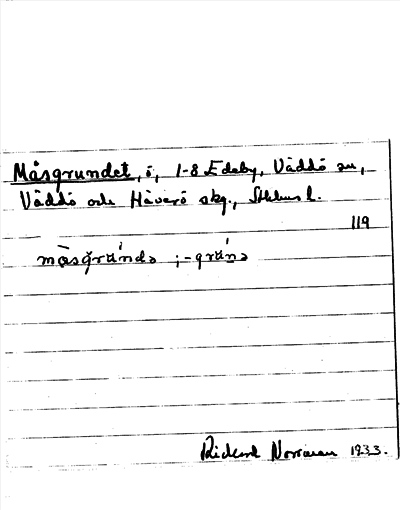 Måsgrundet, ö, 1-8 Edeby, Väddö sn,
Väddö och Häverö skg., Sthlms l.
119
mɑ̀sgrŭ́ndə ; -grŭ́nə
Rickard Norrman 1933.